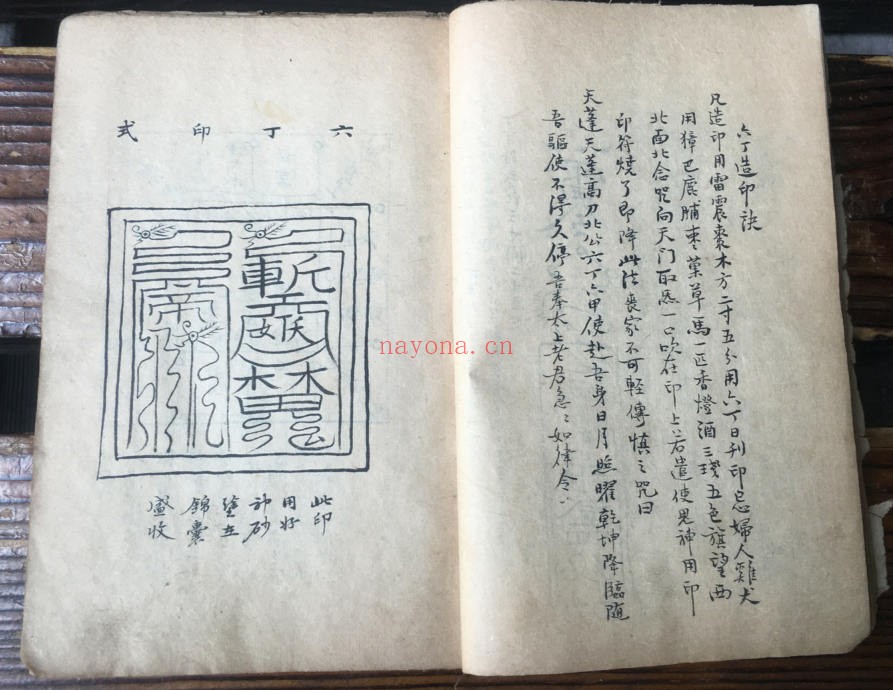 六丁造印訣
凡造印用雷震棗木方二寸五分用六丁日刊印忌婦人雞犬
用獐巴鹿脯枣菓草馬一匹香燈酒三琖五色旗望西
北面北念咒向天门取炁一口吹在印上若遣使鬼神用印
印符燒了即降此法喪家不可輕傳慎之咒曰
天蓬天蓬高刀北公六丁六甲使赴吾身日月照曜乾坤降臨随
吾驅使不得久停吾奉太上老君急〻如律令
六丁印式
此印
用好
神砂
塗在
錦囊
盛收
nayona.cn